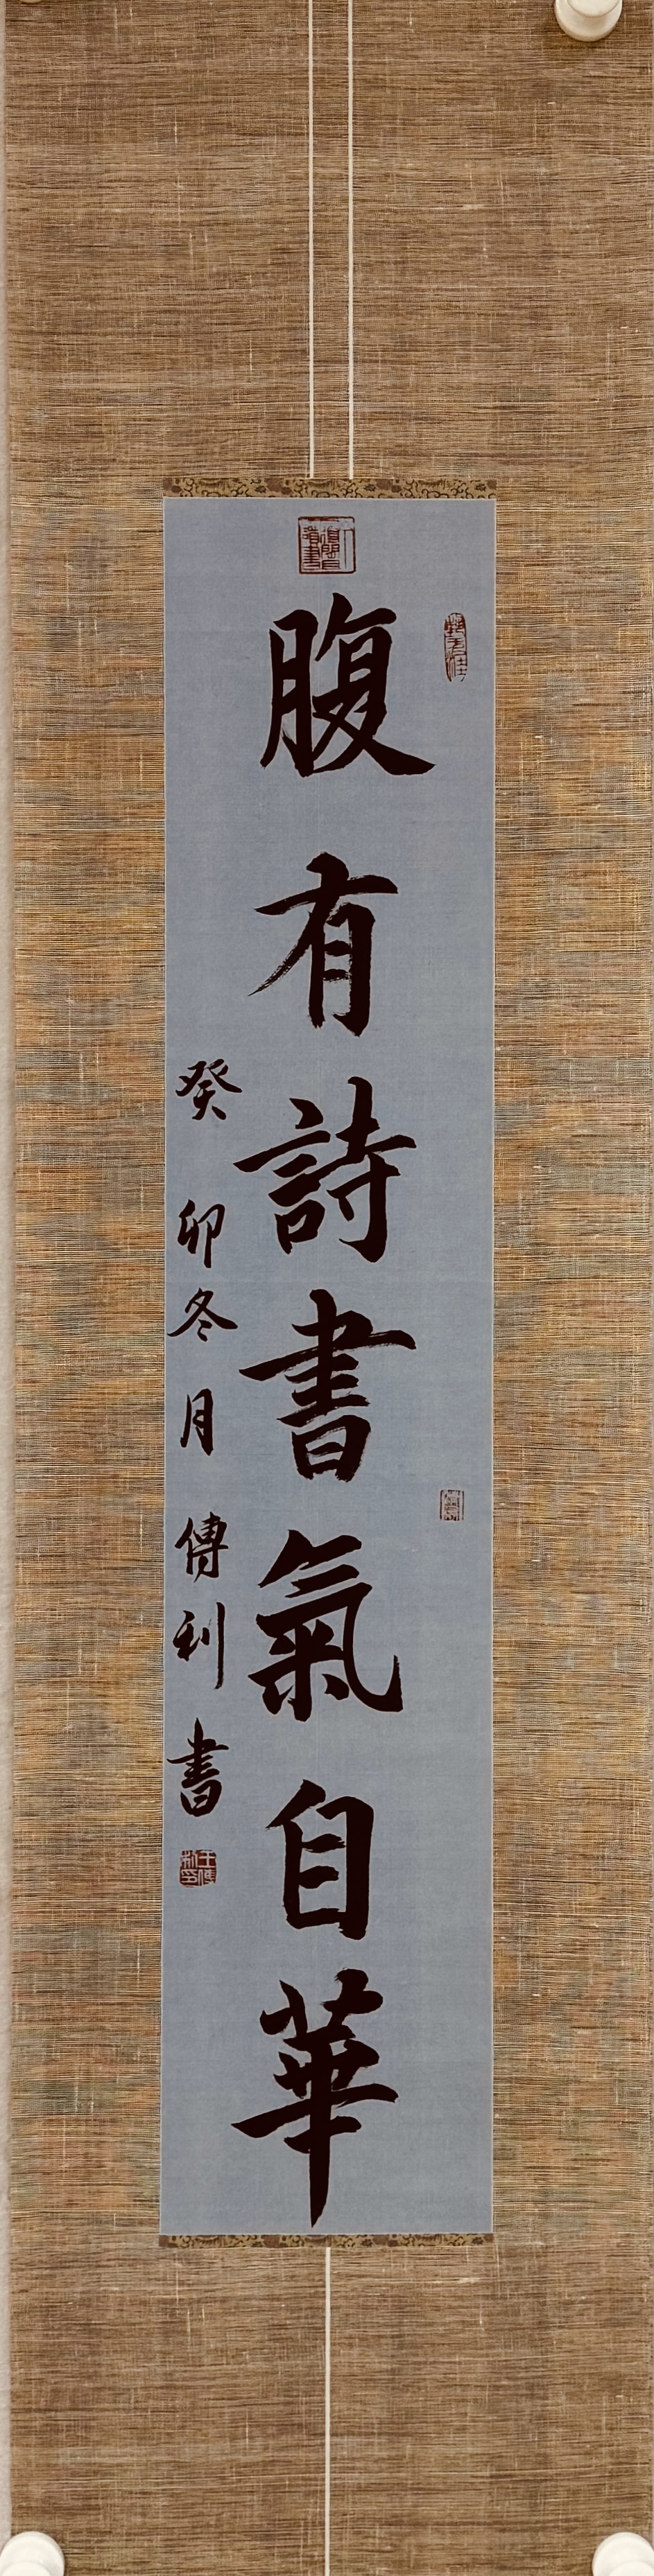 腹有詩書氣自華
癸卯冬月傳利書